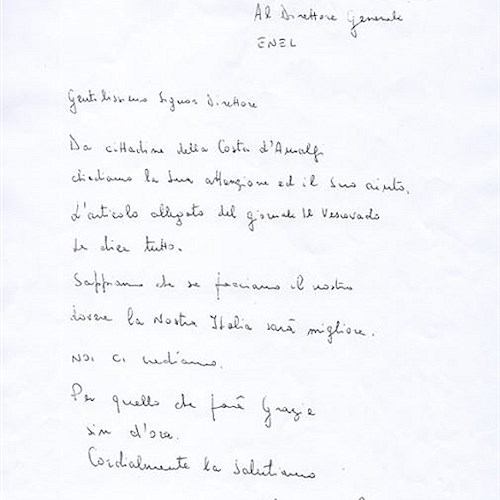 Al Direttore Generale
ENEL
Gentilissimo Signor Direttore
Da cittadine della Costa d'Amalfi
chiediamo la Sua attenzione ed il Suo aiuto.
L'articolo allegato del giornale Il Vescovado
Le dice tutto.
Sappiamo che se facciamo il nostro
dovere la Nostra Italia sarà migliore.
Noi ci crediamo.
Per quello che farà Grazie
sin d'ora.
Cordialmente La Salutiamo